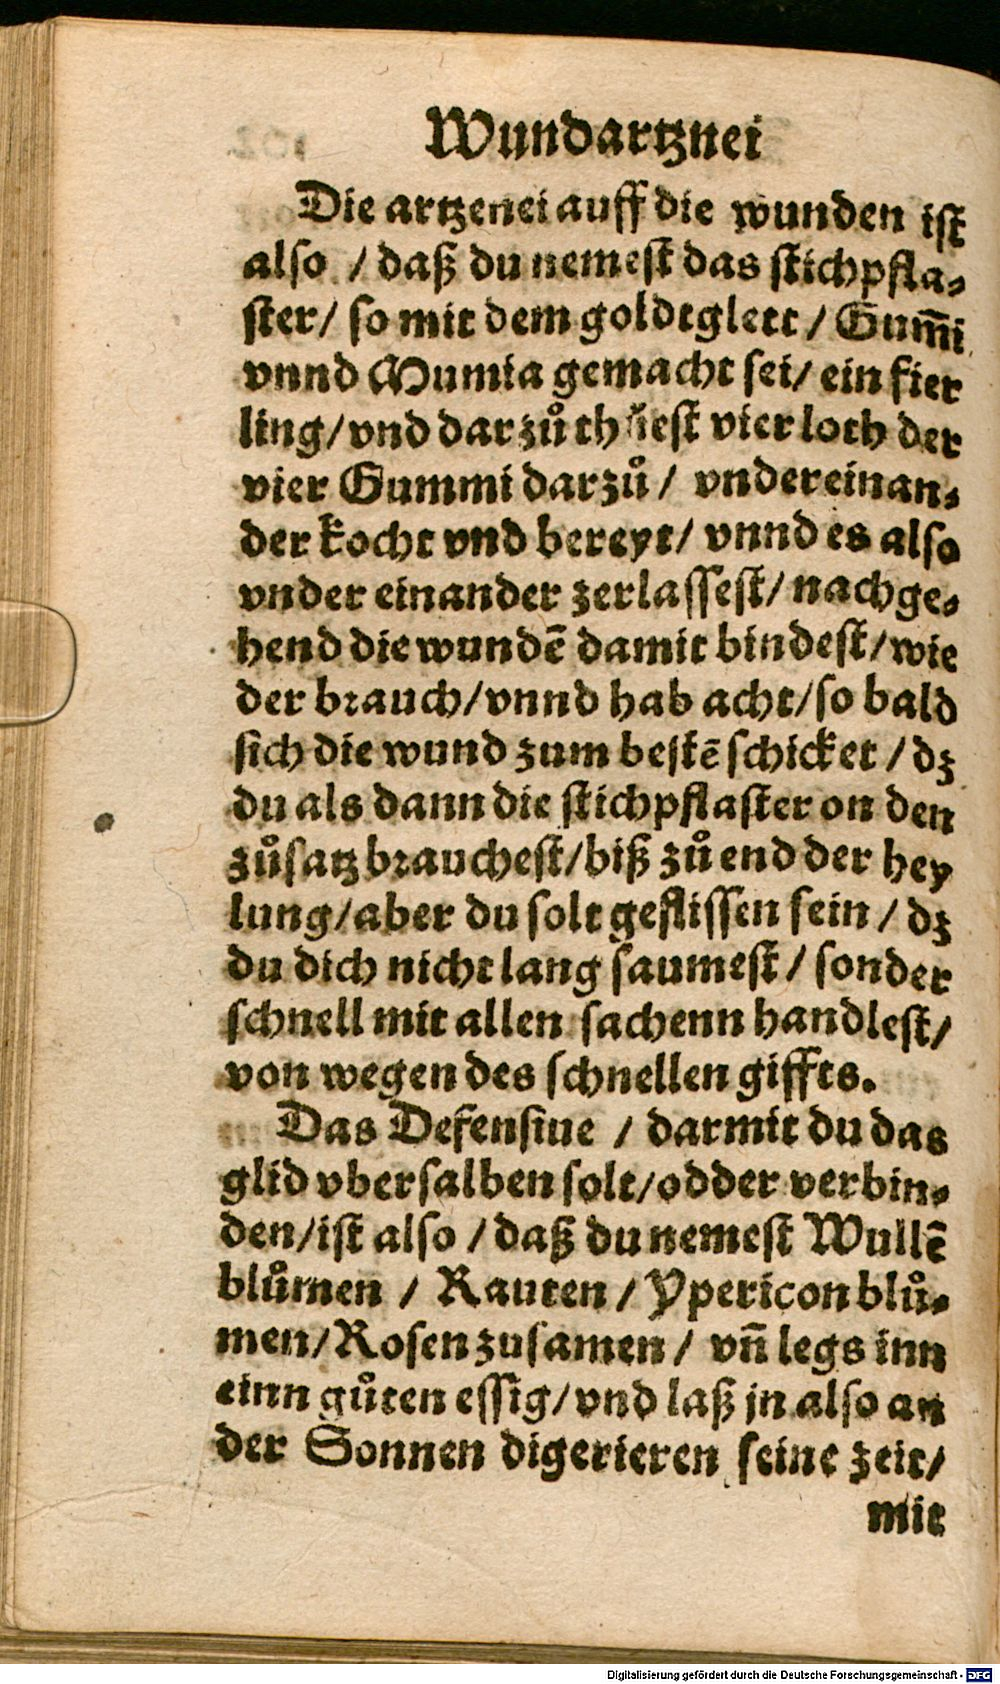 Wundartznei
Die artzenei auff die wunden ist
also / daß du nemest das stichpfla⸗
ster / so mit dem goldtglett / Gum̃i
vnnd Mumia gemacht sei / ein fier
ling / vnd darzů thůest vier loth der
vier Gummi darzů / vndereinan⸗
der kocht vnd bereyt / vnnd es also
vnder einander zerlassest / nachge⸗
hend die wundẽ damit bindest / wie
der brauch / vnnd hab acht / so bald
sich die wund zum bestẽ schicket / dz
du als dann die stichpflaster on den
zůsatz brauchest / biß zů end der hey
lung / aber du solt geflissen sein / dz
du dich nicht lang saumest / sonder
schnell mit allen sachenn handlest /
von wegen des schnellen giffts.
Das Defensiue / darmit du das
glid vbersalben solt / odder verbin⸗
den / ist also / daß du nemest Wullẽ
blůmen / Rauten / Ypericon blů⸗
men / Rosen zusamen / vñ legs inn
einn gůten essig / vnd laß jn also an
der Sonnen digerieren seine zeit /
mit
Digitalisierung gefördert durch die Deutsche Forschungsgemeinschaft - DFG